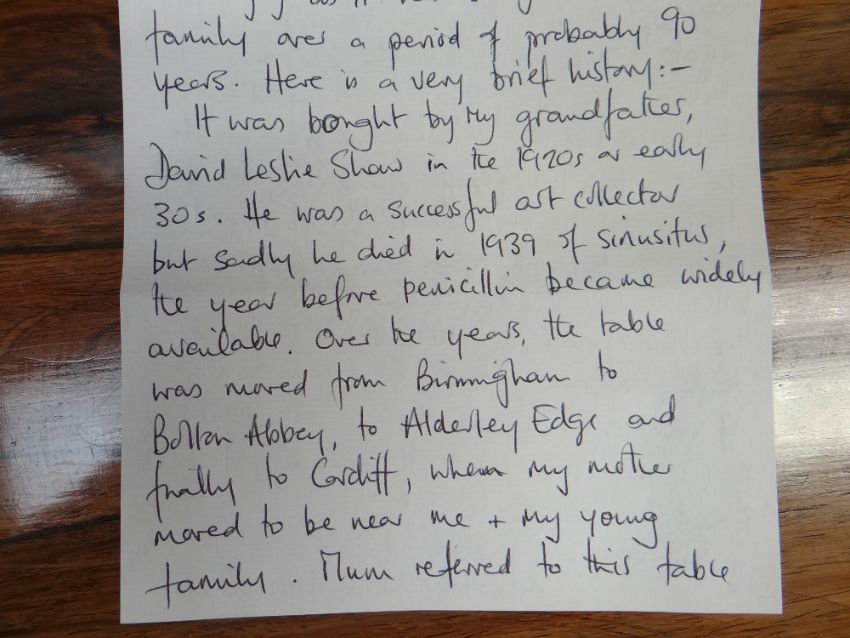 family over a period of probably 90
years. Here is a very brief history:-
It was bought by my grandfather,
David Leslie Shaw in the 1920s or early
30s. He was a successful art collector
but sadly he died in 1939 of sinusitus,
the year before penicillin became widely
available. Over the years, the table
was moved from Birmingham to
Bolton Abbey, to Alderley Edge and
finally to Cardiff, when my mother
moved to be near me + my young
family. Mum referred to this table